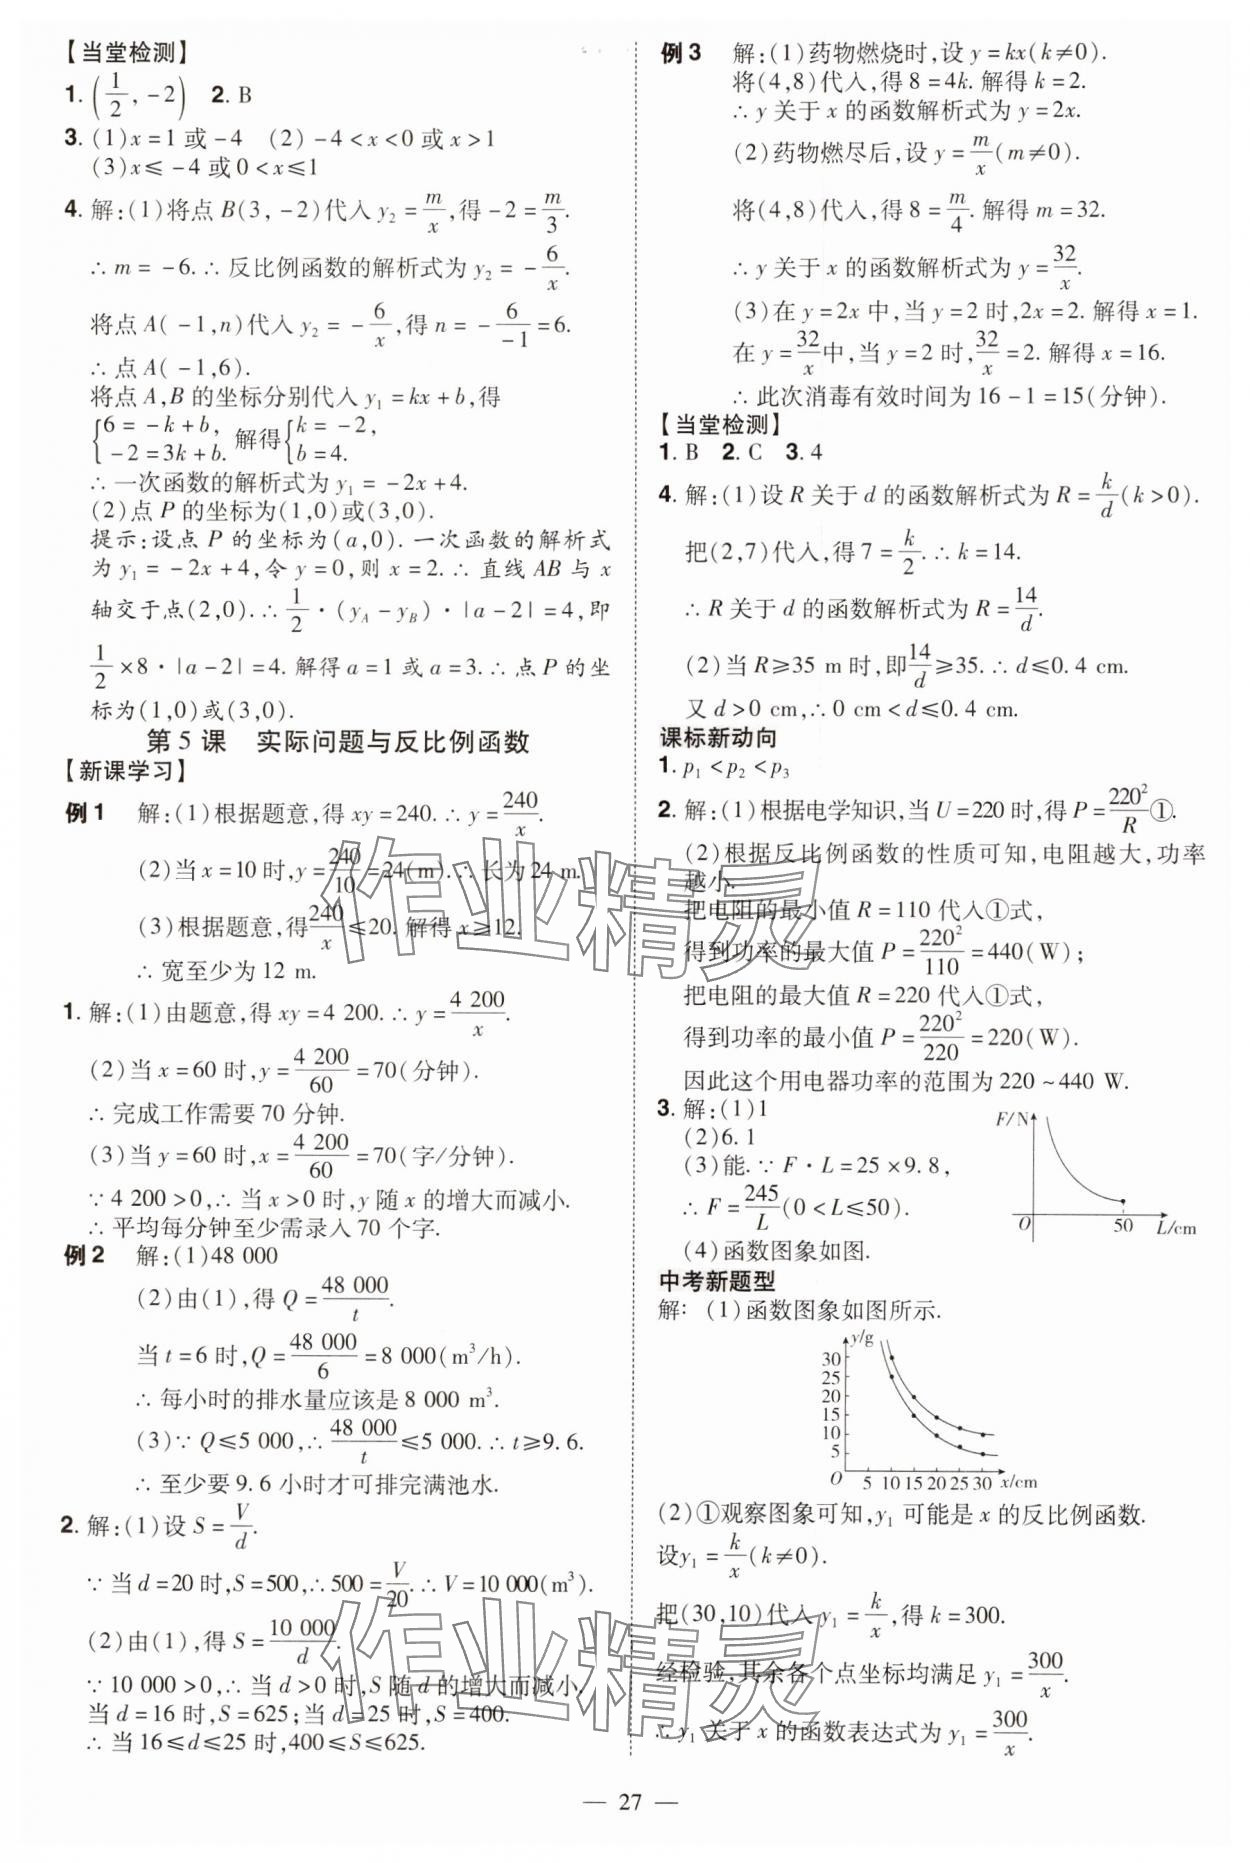 【当堂检测】
1. (1/2, -2)  2. B
3. (1)x=1 或 -4  (2) -4<x<0 或 x>1
(3)x≤ -4 或 0<x≤1
4. 解:(1)将点 B(3, -2)代入 y₂ = m/x,得 -2 = m/3.
∴ m = -6. ∴ 反比例函数的解析式为 y₂ = -6/x.
将点 A( -1,n)代入 y₂ = -6/x,得 n = -6/-1 = 6.
∴ 点 A( -1,6).
将点 A,B 的坐标分别代入 y₁ = kx + b,得
{6 = -k + b, -2 = 3k + b. 解得 {k = -2, b = 4.
∴ 一次函数的解析式为 y₁ = -2x + 4.
(2)点 P 的坐标为(1,0)或(3,0).
提示:设点 P 的坐标为(a,0). 一次函数的解析式
为 y₁ = -2x + 4,令 y = 0,则 x = 2. ∴ 直线 AB 与 x
轴交于点(2,0). ∴ 1/2 · (y_A - y_B) · |a - 2| = 4,即
1/2 × 8 · |a - 2| = 4. 解得 a = 1 或 a = 3. ∴ 点 P 的坐
标为(1,0)或(3,0).
第 5 课 实际问题与反比例函数
【新课学习】
例 1 解:(1)根据题意,得 xy = 240. ∴ y = 240/x.
(2)当 x = 10 时,y = 240/10 = 24(m). ∴ 长为 24 m.
(3)根据题意,得 240/x ≤ 20. 解得 x ≥ 12.
∴ 宽至少为 12 m.
1. 解:(1)由题意,得 xy = 4 200. ∴ y = 4 200/x.
(2)当 x = 60 时,y = 4 200/60 = 70(分钟).
∴ 完成工作需要 70 分钟.
(3)当 y = 60 时,x = 4 200/60 = 70(字/分钟).
∵ 4 200 > 0,∴ 当 x > 0 时,y 随 x 的增大而减小.
∴ 平均每分钟至少需录入 70 个字.
例 2 解:(1)48 000
(2)由(1),得 Q = 48 000/t.
当 t = 6 时,Q = 48 000/6 = 8 000(m³/h).
∴ 每小时的排水量应该是 8 000 m³.
(3)∵ Q ≤ 5 000,∴ 48 000/t ≤ 5 000. ∴ t ≥ 9. 6.
∴ 至少要 9. 6 小时才可排完满池水.
2. 解:(1)设 S = V/d.
∵ 当 d = 20 时,S = 500,∴ 500 = V/20. ∴ V = 10 000(m³).
(2)由(1),得 S = 10 000/d.
∵ 10 000 > 0,∴ 当 d > 0 时,S 随 d 的增大而减小.
当 d = 16 时,S = 625;当 d = 25 时,S = 400.
∴ 当 16 ≤ d ≤ 25 时,400 ≤ S ≤ 625.
例 3 解:(1)药物燃烧时,设 y = kx(k ≠ 0).
将(4,8)代入,得 8 = 4k. 解得 k = 2.
∴ y 关于 x 的函数解析式为 y = 2x.
(2)药物燃尽后,设 y = m/x(m ≠ 0).
将(4,8)代入,得 8 = m/4. 解得 m = 32.
∴ y 关于 x 的函数解析式为 y = 32/x.
(3)在 y = 2x 中,当 y = 2 时,2x = 2. 解得 x = 1.
在 y = 32/x 中,当 y = 2 时,32/x = 2. 解得 x = 16.
∴ 此次消毒有效时间为 16 - 1 = 15(分钟).
【当堂检测】
1. B  2. C  3. 4
4. 解:(1)设 R 关于 d 的函数解析式为 R = k/d(k > 0).
把(2,7)代入,得 7 = k/2. ∴ k = 14.
∴ R 关于 d 的函数解析式为 R = 14/d.
(2)当 R ≥ 35 m 时,即 14/d ≥ 35. ∴ d ≤ 0. 4 cm.
又 d > 0 cm,∴ 0 cm < d ≤ 0. 4 cm.
课标新动向
1. p₁ < p₂ < p₃
2. 解:(1)根据电学知识,当 U = 220 时,得 P = 220²/R ①.
(2)根据反比例函数的性质可知,电阻越大,功率
越小.
把电阻的最小值 R = 110 代入①式,
得到功率的最大值 P = 220²/110 = 440(W);
把电阻的最大值 R = 220 代入①式,
得到功率的最小值 P = 220²/220 = 220(W).
因此这个用电器功率的范围为 220 ~ 440 W.
3. 解:(1)1
(2)6. 1
(3)能. ∵ F · L = 25 × 9. 8,
∴ F = 245/L (0 < L ≤ 50).
(4)函数图象如图.
F/N
O 50 L/cm
中考新题型
解: (1)函数图象如图所示.
y/g
30
25
20
15
10
5
O 5 10 15 20 25 30 x/cm
(2)①观察图象可知,y₁ 可能是 x 的反比例函数.
设 y₁ = k/x(k ≠ 0).
把(30,10)代入 y₁ = k/x,得 k = 300.
经检验,其余各个点坐标均满足 y₁ = 300/x.
∴ y₁ 关于 x 的函数表达式为 y₁ = 300/x.
— 27 —
作业精灵
作业精灵